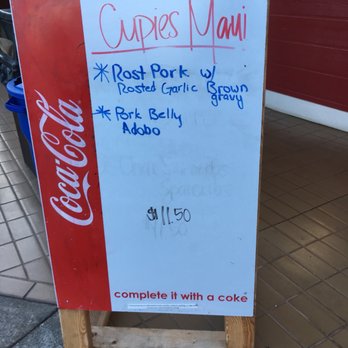 Cupies Maui
* Rost Pork w/
Rosted Garlic Brown
gravy
* Pork Belly
Adobo
$11.50
Coca-Cola
complete it with a coke